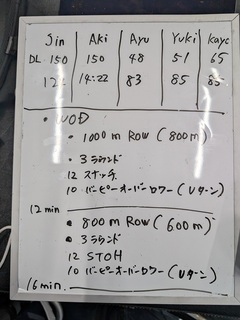 Jin Aki Ayu Yuki kayo
DL 150 150 48 51 65
12 14:22 83 85 85
・WOD
・1000m Row (800m)
・3ラウンド
12 スナッチ
10 バーピーオーバーロワー (Uターン)
12min
・800m Row (600m)
・3ラウンド
12 STOH
10 バーピーオーバーロワー (Uターン)
16min.